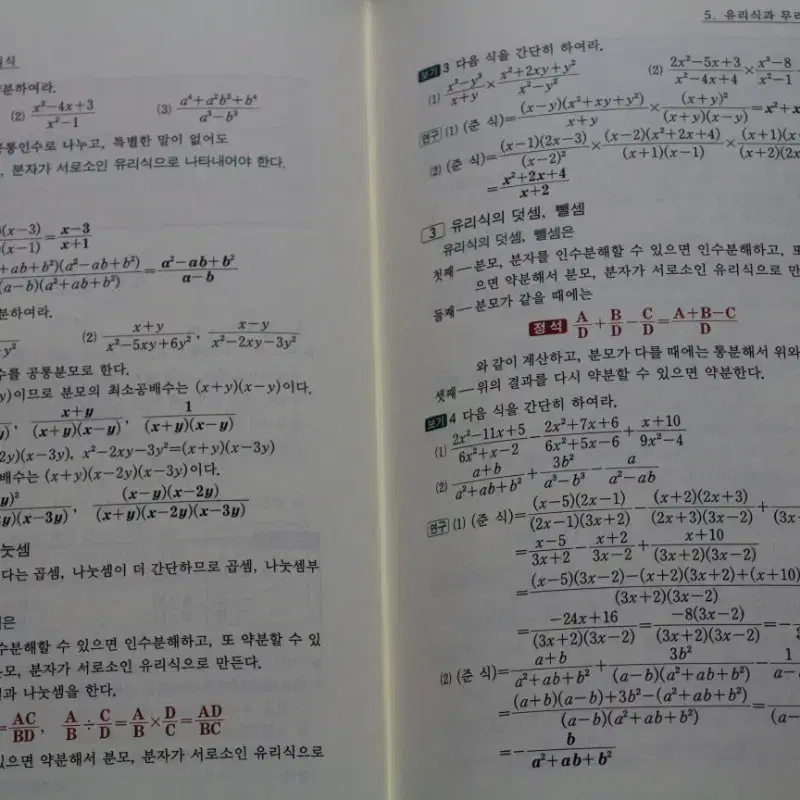 분하여라.
(2) (x²-4x+3)/(x²-1) (3) (a⁴+a²b²+b⁴)/(a³-b³)
공통인수로 나누고, 특별한 말이 없어도
, 분자가 서로소인 유리식으로 나타내어야 한다.
(x-3)/(x-1) = (x-3)/(x+1)
+ab+b²)(a²-ab+b²)/(a-b)(a²+ab+b²) = (a²-ab+b²)/(a-b)
분하여라.
(2) (x+y)/(x²-5xy+6y²), (x-y)/(x²-2xy-3y²)
수를 공통분모로 한다.
y)이므로 분모의 최소공배수는 (x+y)(x-y)이다.
(x+y)/((x+y)(x-y)), 1/((x+y)(x-y))
2y)(x-3y), x²-2xy-3y²=(x+y)(x-3y)
배수는 (x+y)(x-2y)(x-3y)이다.
y)²/y)(x-3y), (x-y)(x-2y)/((x+y)(x-2y)(x-3y))
나눗셈
다는 곱셈, 나눗셈이 더 간단하므로 곱셈, 나눗셈부
은
수분해할 수 있으면 인수분해하고, 또 약분할 수 있
분모, 분자가 서로소인 유리식으로 만든다.
과 나눗셈을 한다.
=AC/BD, A/B÷C/D=A/B×D/C=AD/BC
있으면 약분해서 분모, 분자가 서로소인 유리식으로
5. 유리식과 무리
보기 3 다음 식을 간단히 하여라.
(1) (x³-y³)/(x+y)×(x²+2xy+y²)/(x²-y²) (2) (2x²-5x+3)/(x²-4x+4)×(x³-8)/(x²-1)
연구 (1) (준 식)=(x-y)(x²+xy+y²)/(x+y)×(x+y)²/((x+y)(x-y))=x²+x
(2) (준 식)=(x-1)(2x-3)/(x-2)²×(x-2)(x²+2x+4)/((x+1)(x-1))×(x+1)(x/(x+2)(2x
=(x²+2x+4)/(x+2)
3 유리식의 덧셈, 뺄셈
유리식의 덧셈, 뺄셈은
첫째—분모, 분자를 인수분해할 수 있으면 인수분해하고, 또
으면 약분해서 분모, 분자가 서로소인 유리식으로 만
둘째—분모가 같을 때에는
정석 A/D+B/D-C/D=(A+B-C)/D
와 같이 계산하고, 분모가 다를 때에는 통분해서 위와
셋째—위의 결과를 다시 약분할 수 있으면 약분한다.
보기 4 다음 식을 간단히 하여라.
(1) (2x²-11x+5)/(6x²+x-2)-(2x²+7x+6)/(6x²+5x-6)+(x+10)/(9x²-4)
(2) (a+b)/(a²+ab+b²)+3b²/(a³-b³)-a/(a²-ab)
연구 (1) (준 식)=(x-5)(2x-1)/((2x-1)(3x+2))-(x+2)(2x+3)/((2x+3)(3x-2))+/(3x
=(x-5)/(3x+2)-(x+2)/(3x-2)+(x+10)/((3x+2)(3x-2))
=((x-5)(3x-2)-(x+2)(3x+2)+(x+10))/((3x+2)(3x-2))
=(-24x+16)/((3x+2)(3x-2))=-8(3x-2)/((3x+2)(3x-2))=-/3x
(2) (준 식)=(a+b)/(a²+ab+b²)+3b²/((a-b)(a²+ab+b²))-1/(a-
=((a+b)(a-b)+3b²-(a²+ab+b²))/((a-b)(a²+ab+b²))=/(a-
=-b/(a²+ab+b²)